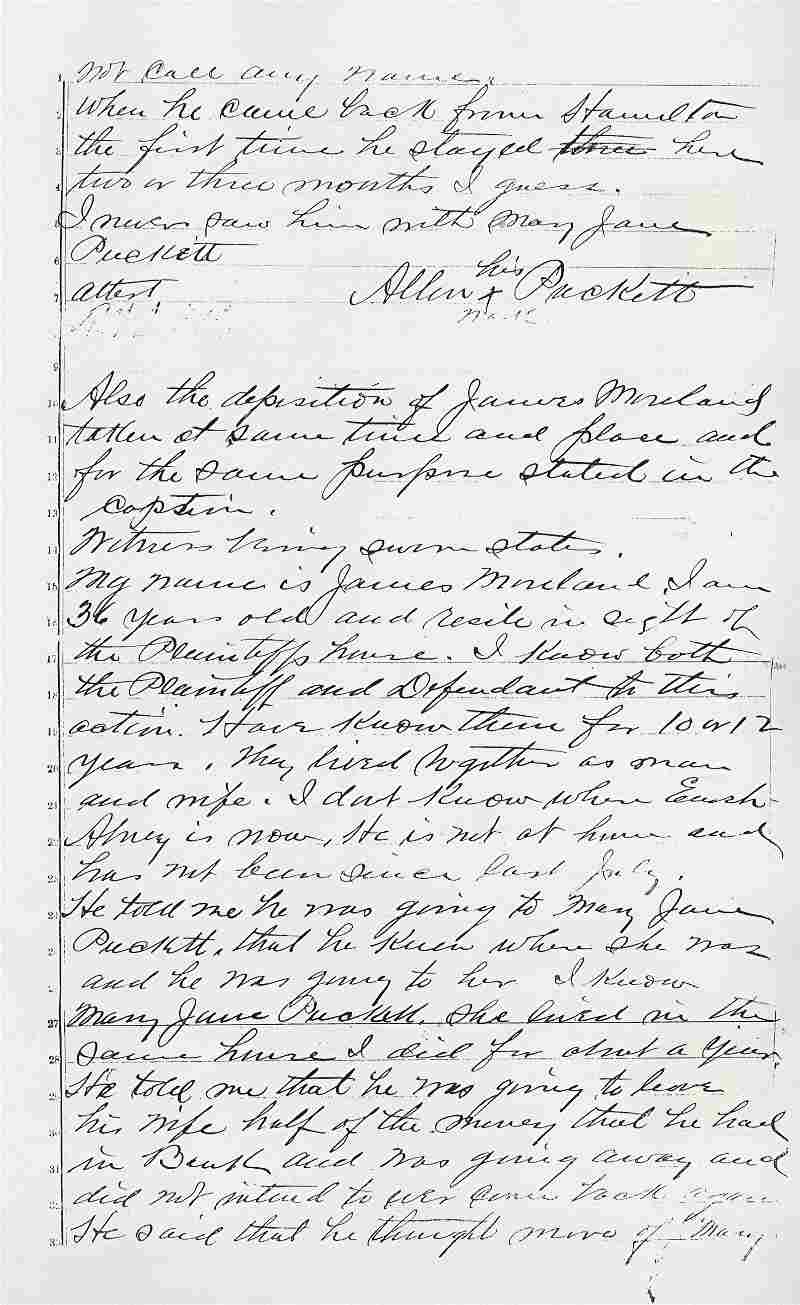 not call any name.
When he came back from Hamilton
the first time he stayed three here
two or three months I guess.
I never saw him with Mary Jane
Puckett
his
attest Allen x Puckett
mark
Also the deposition of James Moreland
taken at same time and place and
for the same purpose stated in the
caption.
Witness being sworn states.
My name is James Moreland. I am
36 years old and reside in sight of
the Plaintiffs house. I know both
the Plaintiff and Defendant to this
action. Have know them for 10 or 12
years. They lived together as man
and wife. I dont know where Enoch
Abney is now, He is not at home and
has not been since last July.
He told me he was going to Mary Jane
Puckett, that he knew where she was
and he was going to her I know
Mary Jane Puckett. she lived in the
same house I did for about a year.
He told me that he was going to leave
his wife half of the money that he had
in Bank and was going away and
did not intend to ever come back again
He said that he thought more of Mary